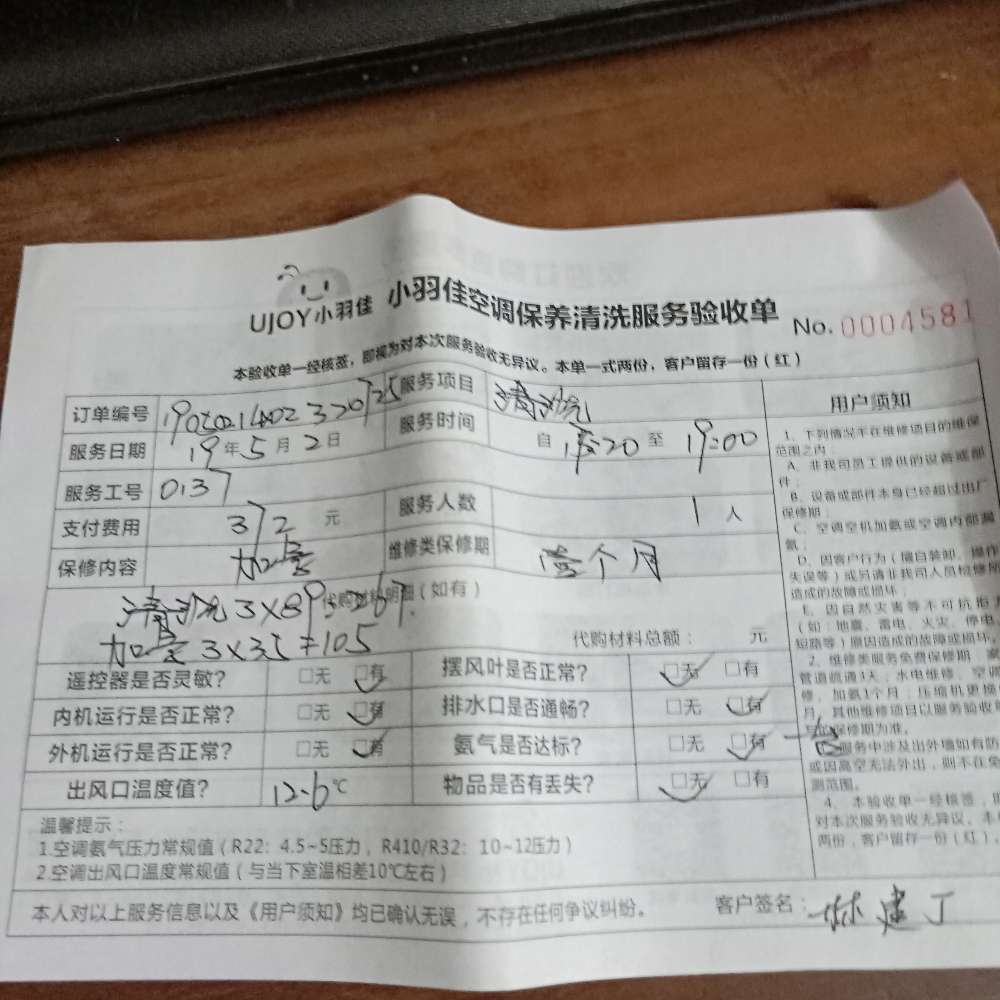 UJOY小羽佳 小羽佳空调保养清洗服务验收单 No. 0004581
本验收单一经核签，即视为对本次服务验收无异议。本单一式两份，客户留存一份（红）
订单编号 服务项目 清洗
服务日期 19年5月2日 服务时间 自 至 19:00
服务工号 0137
支付费用 372 元 服务人数 1人
保修内容 加氨 维修类保修期 壹个月
代购材料明细（如有）
清洗3×89=267
加氨3×35=105 代购材料总额： 元
遥控器是否灵敏？ □无 □有 摆风叶是否正常？ □无 □有
内机运行是否正常？ □无 □有 排水口是否通畅？ □无 □有
外机运行是否正常？ □无 □有 氨气是否达标？ □无 □有
出风口温度值？ 12.6℃ 物品是否有丢失？ □无 □有
温馨提示：
1.空调氨气压力常规值（R22：4.5~5压力，R410/R32：10~12压力）
2.空调出风口温度常规值（与当下室温相差10℃左右）
本人对以上服务信息以及《用户须知》均已确认无误，不存在任何争议纠纷。 客户签名：林建丁
用户须知
1、下列情况不在维修项目的维保
范围之内：
A、非我司员工提供的设备或部
件；
B、设备或部件本身已经超过出厂
保修期；
C、空调空机加氨或空调内部漏
氨；
D、因客户行为（擅自装卸、操作
失误等）或另请非我司人员检修所
造成的故障或损坏；
E、因自然灾害等不可抗拒
（如：地震、雷电、火灾、停电
短路等）原因造成的故障或损坏。
2、维修类服务免费保修期：家
管道疏通3天；水电维修、空调
修、加氨1个月；压缩机更换
月，其他维修项目以服务验收单
保修期为准。
服务中涉及出外墙如有防
或因高空无法外出，则不在免
测范围。
4、本验收单一经核签，即
对本次服务验收无异议。本单
两份，客户留存一份（红）。